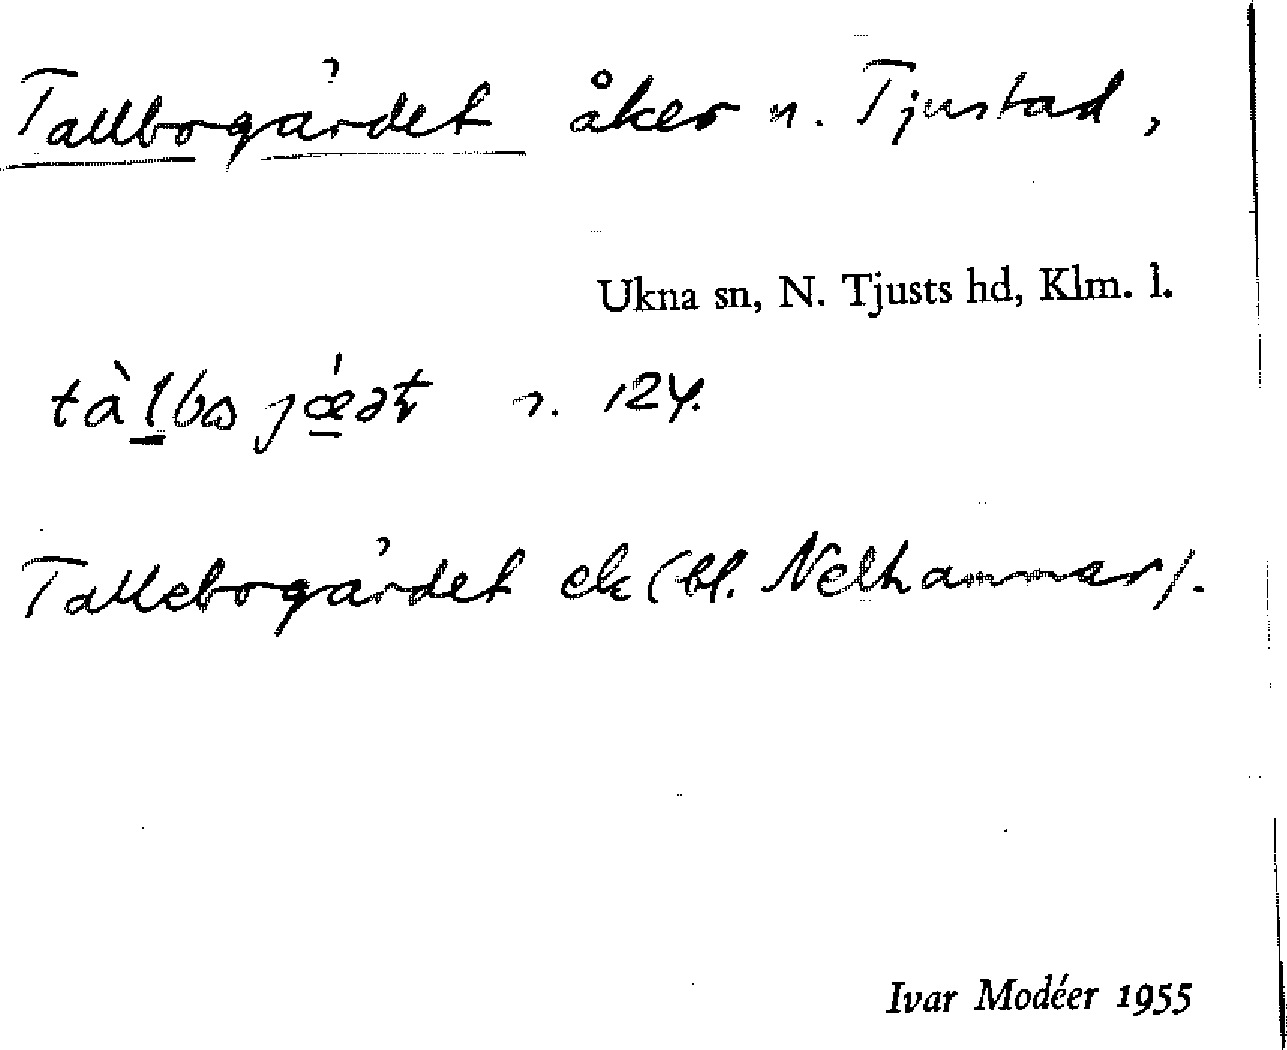 Tallbogärdet åker n. Tjustad,
Ukna sn, N. Tjusts hd, Klm. l.
n. 124.
Tallebogärdet ek (bl. Nelhammar).
Ivar Modéer 1955